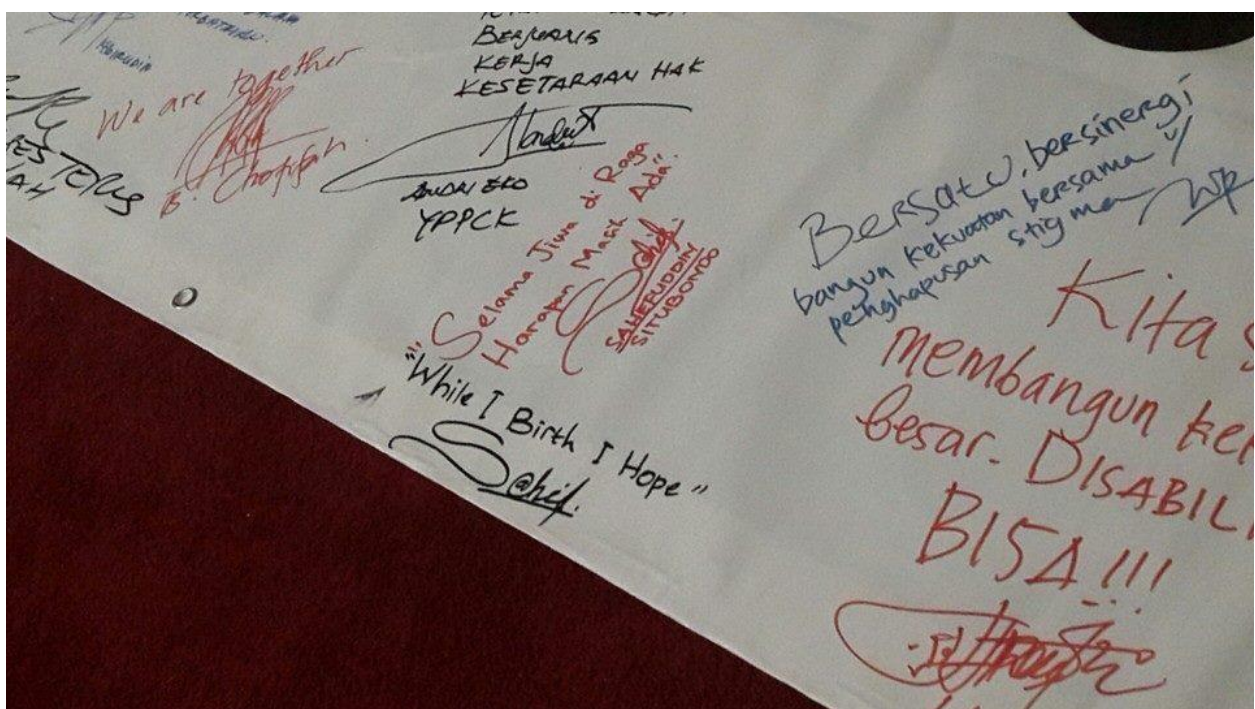 We are together
B. Chotifah
TERUS
BERJUANG
KERJA
KESETARAAN HAK
ANDRI EKO
YPPCK
"Selama Jiwa di Raga
Harapan Masih Ada".
S@hif.
SAHEFUDDIN
SITUBONDO
"While I Birth I Hope"
S@hif.
Bersatu, bersinergi
bangun kekuatan bersama
penghapusan stigma
Kita
membangun
besar. DISABILI
BISA!!!